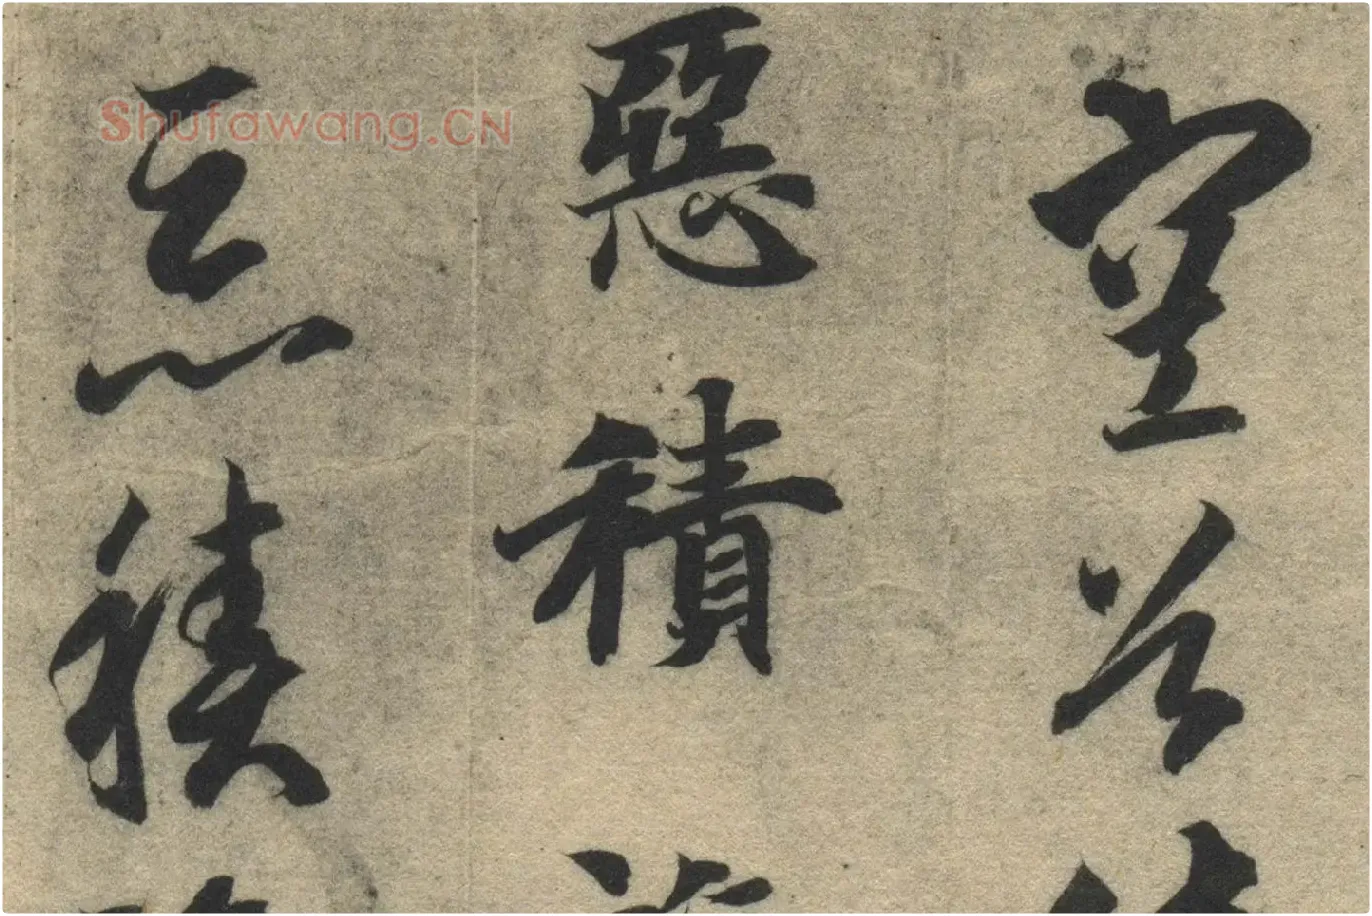 空谷
惡積
惡積
Shufawang.CN